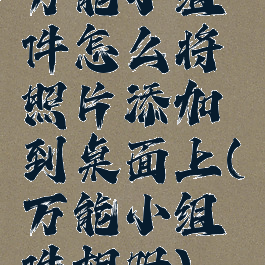 万能小组
件怎么将
照片添加
到桌面上(
万能小组
件相册)